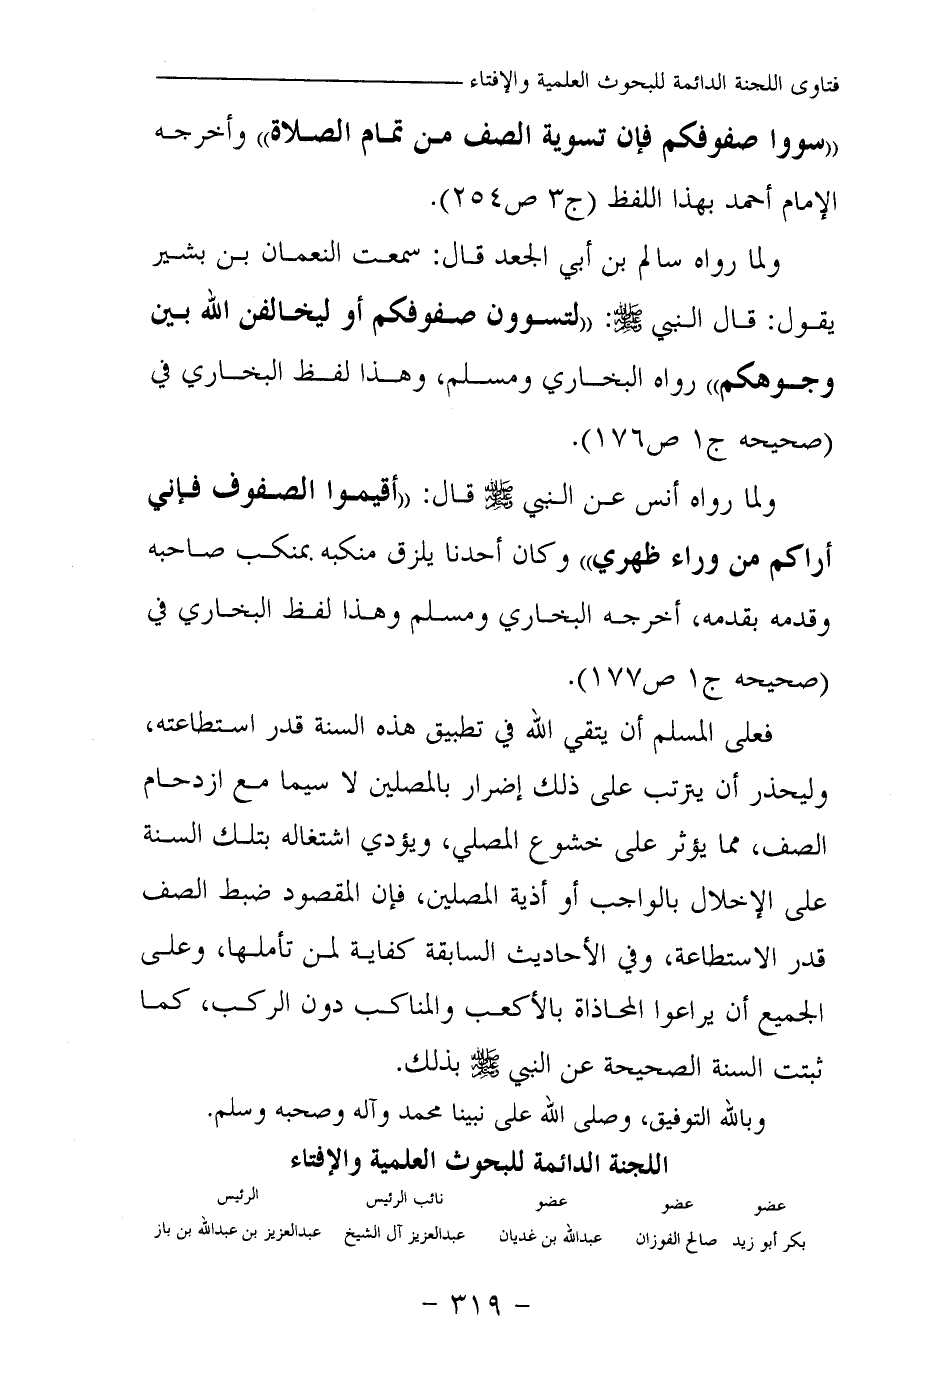 فتاوى اللجنة الدائمة للبحوث العلمية والإفتاء
((سووا صفوفكم فإن تسوية الصف من تمام الصلاة)) وأخرجه
الإمام أحمد بهذا اللفظ (ج٣ ص٢٥٤).
ولما رواه سالم بن أبي الجعد قال: سمعت النعمان بن بشير
يقول: قال النبي ﷺ: ((لتسوون صفوفكم أو ليخالفن الله بين
وجوهكم)) رواه البخاري ومسلم، وهذا لفظ البخاري في
(صحيحه ج١ ص١٧٦).
ولما رواه أنس عن النبي ﷺ قال: ((أقيموا الصفوف فإني
أراكم من وراء ظهري)) وكان أحدنا يلزق منكبه بمنكب صاحبه
وقدمه بقدمه، أخرجه البخاري ومسلم وهذا لفظ البخاري في
(صحيحه ج١ ص١٧٧).
فعلى المسلم أن يتقي الله في تطبيق هذه السنة قدر استطاعته،
وليحذر أن يترتب على ذلك إضرار بالمصلين لا سيما مع ازدحام
الصف، مما يؤثر على خشوع المصلي، ويؤدي اشتغاله بتلك السنة
على الإخلال بالواجب أو أذية المصلين، فإن المقصود ضبط الصف
قدر الاستطاعة، وفي الأحاديث السابقة كفاية لمن تأملها، وعلى
الجميع أن يراعوا المحاذاة بالأكعب والمناكب دون الركب، كما
ثبتت السنة الصحيحة عن النبي ﷺ بذلك.
وبالله التوفيق، وصلى الله على نبينا محمد وآله وصحبه وسلم.
اللجنة الدائمة للبحوث العلمية والإفتاء
عضو عضو عضو نائب الرئيس الرئيس
بكر أبو زيد صالح الفوزان عبدالله بن غديان عبدالعزيز آل الشيخ عبدالعزيز بن عبدالله بن باز
- ٣١٩ -